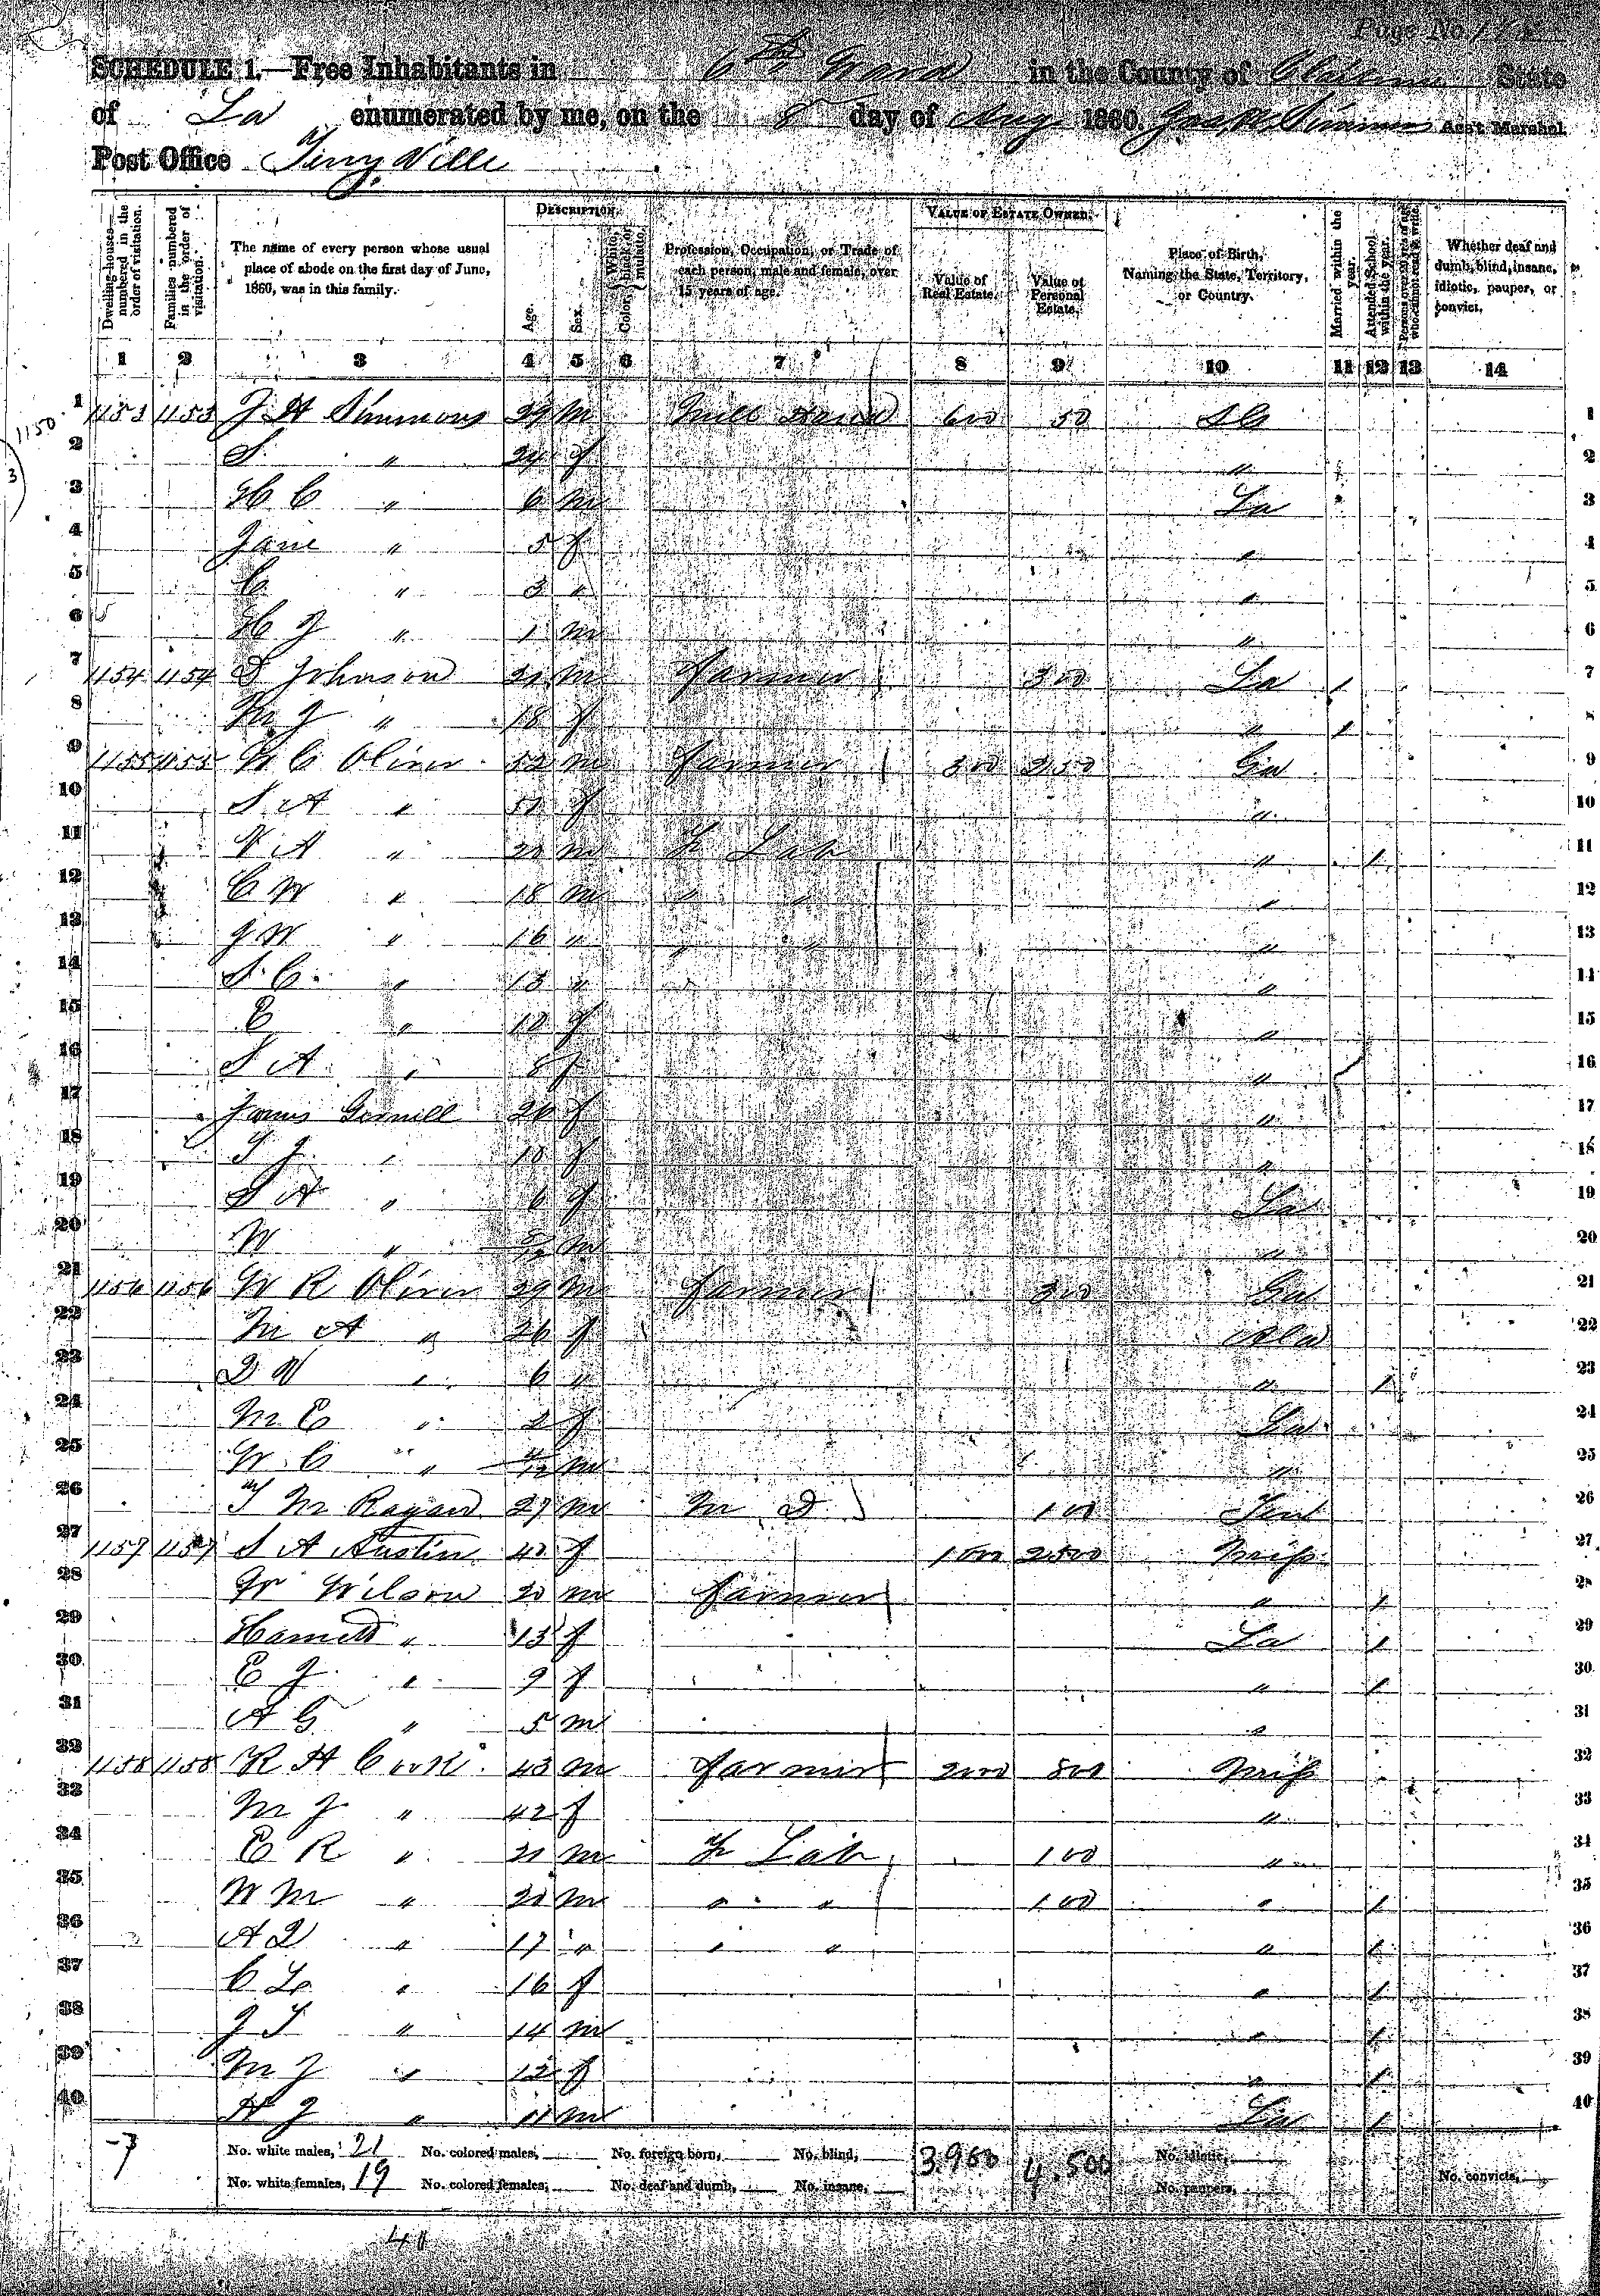 Page No.
SCHEDULE 1.—Free Inhabitants in 6th Ward in the County of Claiborne State
of La enumerated by me, on the 8 day of Aug 1860. Jas. W. Simmons Ass't Marshal.
Post Office Terryville
Dwelling-houses numbered in the order of visitation.
Families numbered in the order of visitation.
The name of every person whose usual place of abode on the first day of June, 1860, was in this family.
DESCRIPTION.
Age.
Sex.
Color, White, black, or mulatto.
Profession, Occupation, or Trade of each person, male and female, over 15 years of age.
VALUE OF ESTATE OWNED.
Value of Real Estate.
Value of Personal Estate.
Place of Birth, Naming the State, Territory, or Country.
Married within the year.
Attended School within the year.
Persons over 20 years of age who cannot read & write.
Whether deaf and dumb, blind, insane, idiotic, pauper, or convict.
1 2 3 4 5 6 7 8 9 10 11 12 13 14
1150
3
1 1153 1153 J H Simmons 29 M Mill Hand 600 50 SC 1
2 S " 24 f " 2
3 H C " 6 m La 3
4 Jane " 5 f " 4
5 C " 3 " " 5
6 H J " 1 m " 6
7 1154 1154 D Johnson 21 M Farmer 300 La / 7
8 M J " 18 f " / 8
9 1155 1155 W C Oliver 52 m Farmer 300 250 Ga 9
10 S A " 51 f " 10
11 A " 20 m F Lab " / 11
12 C W " 18 m " " " 12
13 J W " 16 " " " " 13
14 S C " 13 " " 14
15 E " 10 f " 15
16 S A " 8 f " 16
17 26 f " 17
18 J " 10 f " 18
19 S A " 6 f La 19
20 W " m " 20
21 1156 1156 W R Oliver 29 M Farmer 300 Ga 21
22 M A " 26 f Ala 22
23 D W " 6 " " / 23
24 M E " 2 f La 24
25 W C " m " 25
26 T M Ragan 27 m M D 100 Ten 26
27 1157 1157 S A Austin 40 f 1500 Miss 27
28 W Wilson 20 m Farmer " / 28
29 Harriett " 13 f La / 29
30 E J " 9 f " / 30
31 A G " 5 m " 31
32 1158 1158 R H Cook 43 m Farmer 2000 800 Miss 32
33 M J " 42 f " 33
34 E R " 21 m F Lab 100 " 34
35 W M " 20 m " " 100 " / 35
36 A Q " 17 " " " " / 36
37 C L " 16 f " / 37
38 J T " 14 m " / 38
39 M J " 12 f " / 39
40 H J " 11 m La / 40
-7 No. white males, 21 No. colored males, No. foreign born, No. blind, 3,960 4,500 No. idiotic,
No. white females, 19 No. colored females, No. deaf and dumb, No. insane, No. paupers, No. convicts,
40